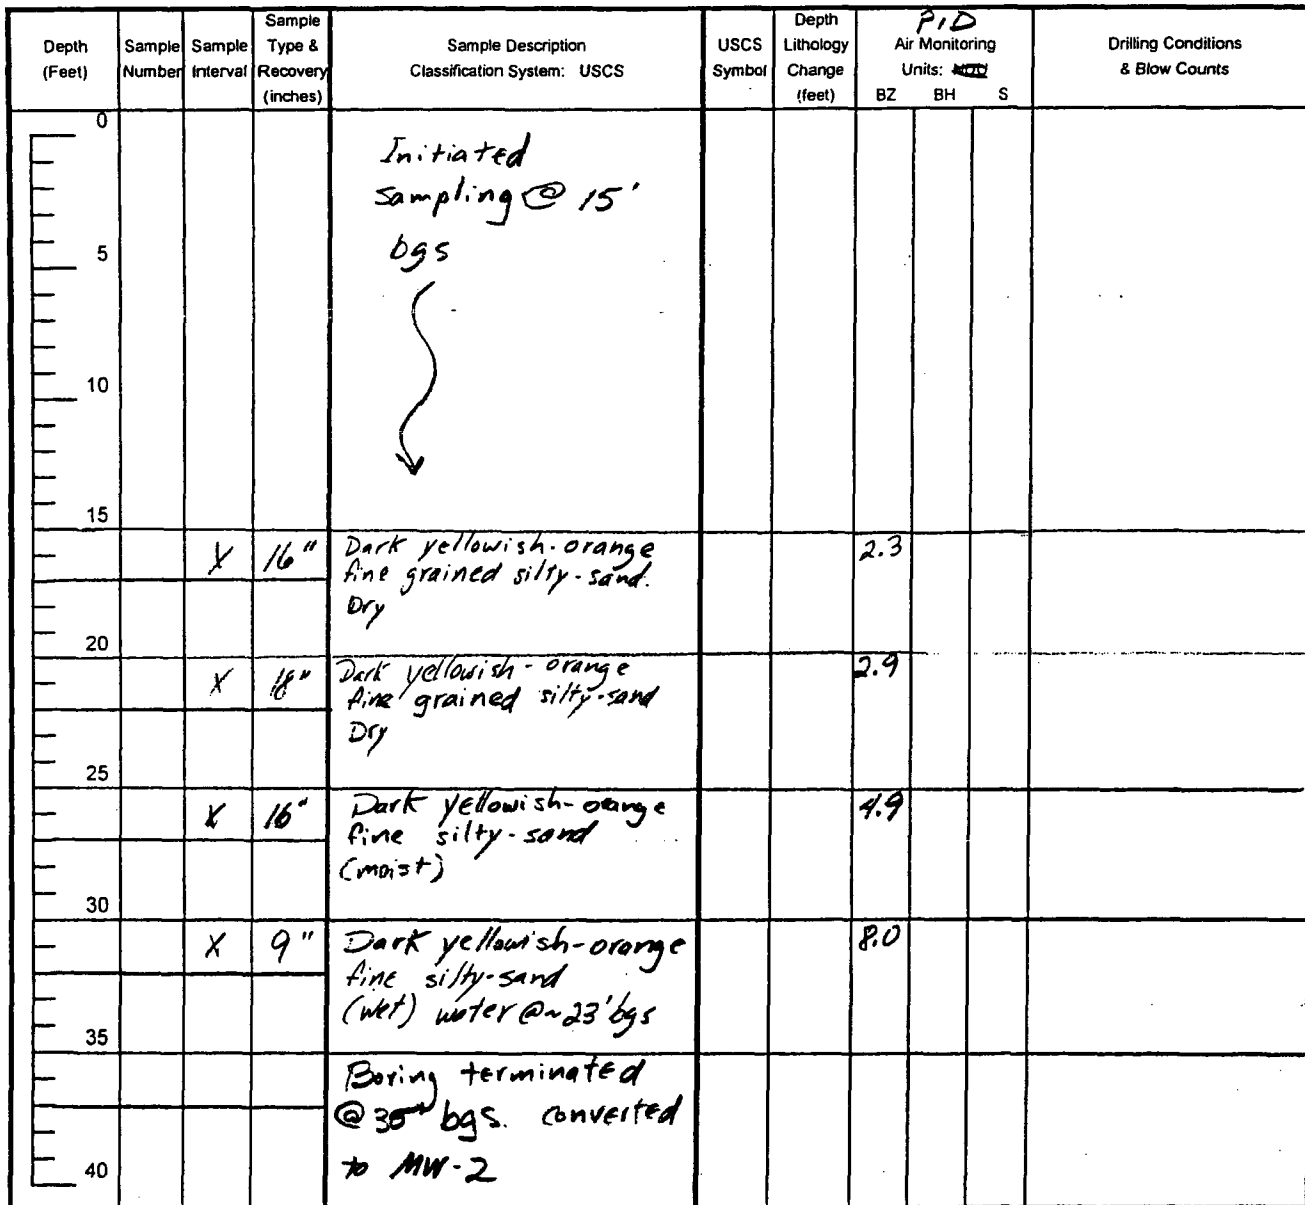 Depth (Feet)
Sample Number
Sample Interval
Sample Type & Recovery (inches)
Sample Description
Classification System: USCS
USCS Symbol
Depth Lithology Change (feet)
PID
Air Monitoring
Units:
BZ BH S
Drilling Conditions
& Blow Counts
0
Initiated
sampling @ 15'
bgs
5
10
15
X 16" Dark yellowish-orange 2.3
fine grained silty-sand.
Dry
20
X 18" Dark yellowish-orange 2.9
fine grained silty-sand
Dry
25
X 16" Dark yellowish-orange 4.9
fine silty-sand
(moist)
30
X 9" Dark yellowish-orange 8.0
fine silty-sand
(wet) water @~23'bgs
35
Boring terminated
@ bgs. converted
to MW-2
40